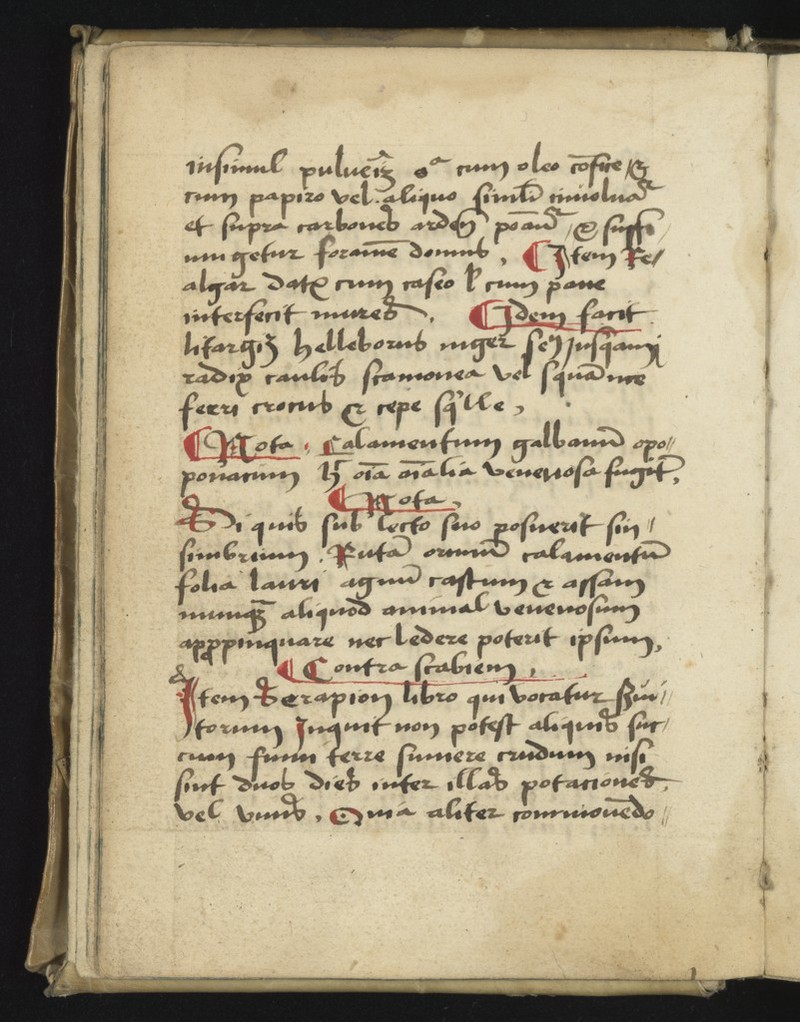 insimul pulueriȝ cum oleo cōfice
cum papiro vel aliquo simili inuoluat᷑
et supra carbones arden̄ ponāt᷑ & suffi/
mi getur foramē domus, ¶ Item Re/
algar dat᷑ cum caseo ł cum pane
interfecit mures. ¶ Idem facit
litargiȝ helleborus niger Jusq̄ami
radix caulis scamonea vel squāme
ferri crocus & cepe sq̈lle,
¶ Nota. Calamentum galbanū opo//
ponacum oīa aīalia venenosa fugit᷑,
¶ Nota,
Si quis sub lecto suo posuerit sin//
simbrium. Rutā calamentū
folia lauri agnū castum & assam
munq̄ȝ aliquod animal venenosum
apropinquare nec ledere poterit ipsum,
¶ Contra scabiem,
Item Serapion libro qui vocatur Sui//
torum Inquit non potest aliquis suc/
cum fumi terre sumere crudum nisi
sint duos dies inter illas potaciones,
vel vnus, Quia aliter commouēdo//